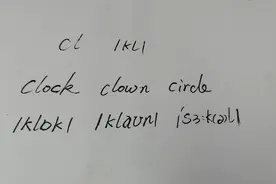 cl /kl/
clock clown circle
/klɒk/ /klaʊn/ /sɜ:k(ə)l/